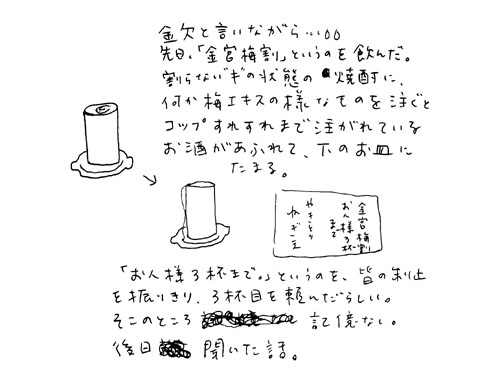 金欠と言いながら…。
先日、「金宮梅割」というのを飲んだ。
割らないギの状態の焼酎に、
何か梅エキスの様なものを注ぐと
コップすれすれまで注がれている
お酒があふれて、下のお皿に
たまる。
金宮梅割
お人様3杯
まで
やきとり
「お人様3杯まで。」というのを、皆の制止
を振りきり、3杯目を頼んだらしい。
そこのところ 記憶ない。
後日 聞いた話。